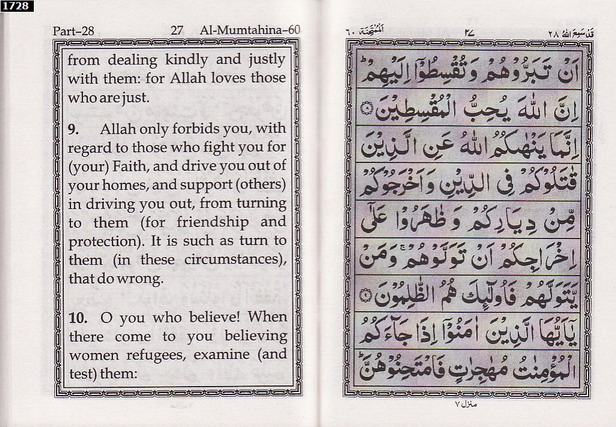 1728
Part–28 27 Al-Mumtahina–60
from dealing kindly and justly
with them: for Allah loves those
who are just.
9. Allah only forbids you, with
regard to those who fight you for
(your) Faith, and drive you out of
your homes, and support (others)
in driving you out, from turning
to them (for friendship and
protection). It is such as turn to
them (in these circumstances),
that do wrong.
10. O you who believe! When
there come to you believing
women refugees, examine (and
test) them:
الْمُمْتَحِنَة ٦٠ ٢٧ قَدْ سَمِعَ اللهُ ٢٨
اَنْ تَبَرُّوْهُمْ وَتُقْسِطُوْۤا اِلَيْهِمْ ؕ
اِنَّ اللّٰهَ يُحِبُّ الْمُقْسِطِيْنَ ۝٨
اِنَّمَا يَنْهٰىكُمُ اللّٰهُ عَنِ الَّذِيْنَ
قٰتَلُوْكُمْ فِى الدِّيْنِ وَاَخْرَجُوْكُمْ
مِّنْ دِيَارِكُمْ وَظٰهَرُوْا عَلٰۤى
اِخْرَاجِكُمْ اَنْ تَوَلَّوْهُمْ ۚ وَمَنْ
يَّتَوَلَّهُمْ فَاُولٰٓئِكَ هُمُ الظّٰلِمُوْنَ ۝٩
يٰۤاَيُّهَا الَّذِيْنَ اٰمَنُوْۤا اِذَا جَآءَكُمُ
الْمُؤْمِنٰتُ مُهٰجِرٰتٍ فَامْتَحِنُوْهُنَّ ؕ
منزل ٧